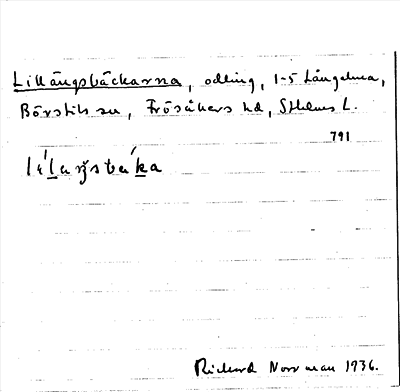 Lillängsbäckarna, odling, 1-5 Långalma,
Börstils sn, Frösåkers hd, Sthlms l.
791
Richard Norrman 1936.